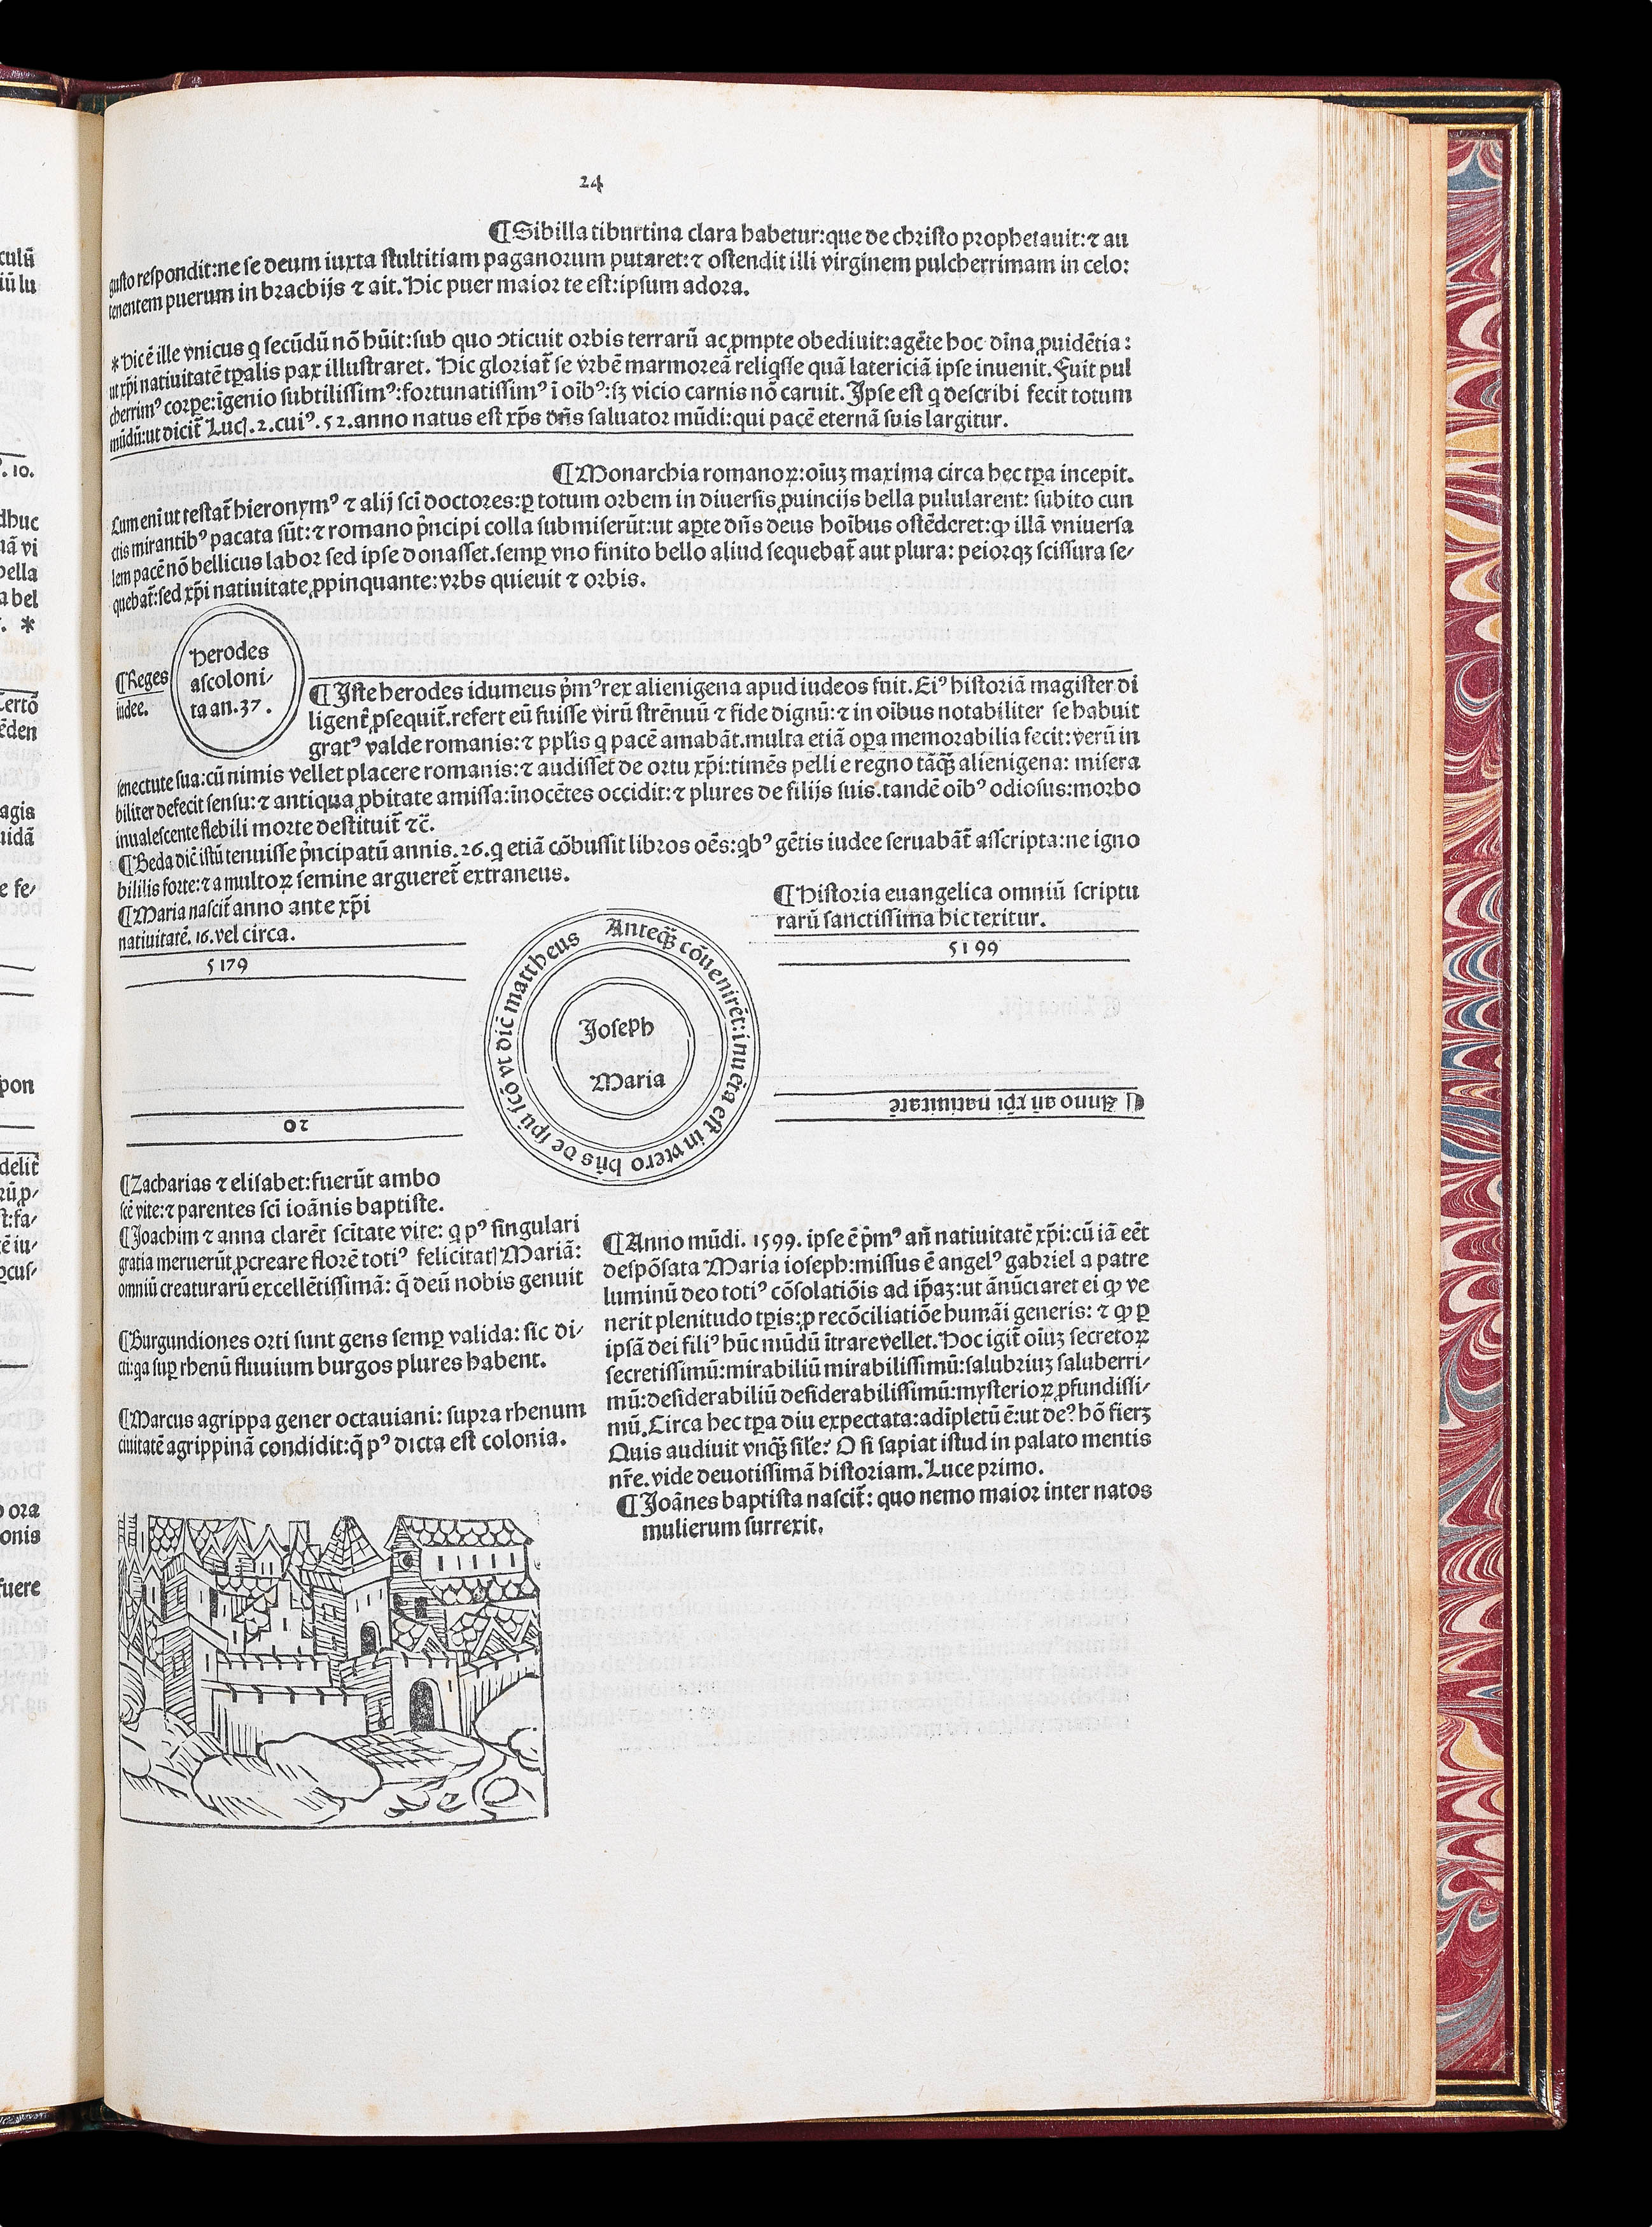 24
¶Sibilla tiburtina clara habetur:que de christo prophetauit:⁊ au
gusto respondit:ne se deum iuxta stultitiam paganorum putaret:⁊ ostendit illi virginem pulcherrimam in celo:
tenentem puerum in brachijs ⁊ ait. Hic puer maior te est:ipsum adora.
*Hic ē ille vnicus q secūdū nō hūit:sub quo ꝯticuit orbis terrarū ac ꝓmpte obediuit:agēte hoc diña ꝓuidētia:
ut xp̄i natiuitatē tꝑalis pax illustraret. Hic gloriat̄ se vrbē marmoreā reliqsse quā latericiā ipse inuenit. Fuit pul
cherrimꝰ corꝑe:īgenio subtilissimꝰ:fortunatissimꝰ ī oībꝰ:sꝫ vicio carnis nō caruit. Ipse est q describi fecit totum
mūdū:ut dicit̄ Lucꝭ.2.cuiꝰ.52.anno natus est xp̄s dn̄s saluator mūdi:qui pacē eternā suis largitur.
¶Monarchia romanoꝝ:oīuꝫ maxima circa hec tꝑa incepit.
Cum enī ut testat̄ hieronymꝰ ⁊ alij sc̄i doctores:ꝑ totum orbem in diuersis ꝓuincijs bella pulularent: subito cun
ctis mirantibꝰ pacata sūt:⁊ romano p̄ncipi colla submiserūt:ut aꝑte dn̄s deus hoībus ostēderet:ꝙ illā vniuersa
lem pacē nō bellicus labor sed ipse donasset.semꝑ vno finito bello aliud sequebat̄ aut plura: peiorqꝫ scissura se/
quebat̄:sed xp̄i natiuitate ꝓpinquante:vrbs quieuit ⁊ orbis.
¶Reges
iudee.
Herodes
ascoloni/
ta an.37.
¶Iste herodes idumeus p̄mꝰ rex alienigena apud iudeos fuit. Eiꝰ historiā magister di
ligent̄ ꝓsequit̄.refert eū fuisse virū strēnuū ⁊ fide dignū:⁊ in oībus notabiliter se habuit
gratꝰ valde romanis:⁊ pplīs q pacē amabāt.multa etiā oꝑa memorabilia fecit:verū in
senectute sua:cū nimis vellet placere romanis:⁊ audisset de ortu xp̄i:timēs pelli e regno tāꝗ̄ alienigena: misera
biliter defecit sensu:⁊ antiqua ꝓbitate amissa:īnocētes occidit:⁊ plures de filijs suis.tandē oībꝰ odiosus:morbo
inualescente flebili morte destituit̄ ⁊c̄.
¶Beda dic̄ istū tenuisse p̄ncipatū annis.26.q etiā cōbussit libros oēs:qbꝰ gētis iudee seruabāt̄ asscripta:ne igno
bililis forte:⁊ a multoꝝ semine argueret̄ extraneus.
¶Maria nascit̄ anno ante xp̄i
natiuitatē.16.vel circa.
¶Historia euangelica omniū scriptu
rarū sanctissima hic texitur.
5179
5199
Anteꝗ̄ cōuenirēt:inuēta est in vtero hn̄s de spū scō vt dic̄ mattheus
Ioseph
Maria
20
¶Anno añ xp̄i natiuitatē
¶Zacharias ⁊ elisabet:fuerūt ambo
sc̄ē vite:⁊ parentes sc̄i ioānis baptiste.
¶Ioachim ⁊ anna clarēt scītate vite: q pꝰ singulari
gratia meruerūt ꝓcreare florē totiꝰ felicitatꝭ Mariā:
omniū creaturarū excellētissimā: q̄ deū nobis genuit
¶Burgundiones orti sunt gens semꝑ valida: sic di/
cti:qa suꝑ rhenū fluuium burgos plures habent.
¶Marcus agrippa gener octauiani: supra rhenum
ciuitatē agrippinā condidit:q̄ pꝰ dicta est colonia.
¶Anno mūdi. 1599. ipse ē p̄mꝰ añ natiuitatē xp̄i:cū iā eēt
despōsata Maria ioseph:missus ē angelꝰ gabriel a patre
luminū deo totiꝰ cōsolatiōis ad ip̄aꝫ:ut ānūciaret ei ꝙ ve
nerit plenitudo tꝑis:ꝓ recōciliatiōe humāi generis: ⁊ ꝙ ꝑ
ipsā dei filiꝰ hūc mūdū ītrare vellet. Hoc igit̄ oīuꝫ secretoꝝ
secretissimū:mirabiliū mirabilissimū:salubriuꝫ saluberri/
mū:desiderabiliū desiderabilissimū:mysterioꝝ ꝓfundissi/
mū. Circa hec tꝑa diu expectata:adīpletū ē:ut deꝰ hō fierꝫ
Quis audiuit vnꝗ̄ sile? O si sapiat istud in palato mentis
nr̄e.vide deuotissimā historiam. Luce primo.
¶Ioānes baptista nascit̄: quo nemo maior inter natos
mulierum surrexit.